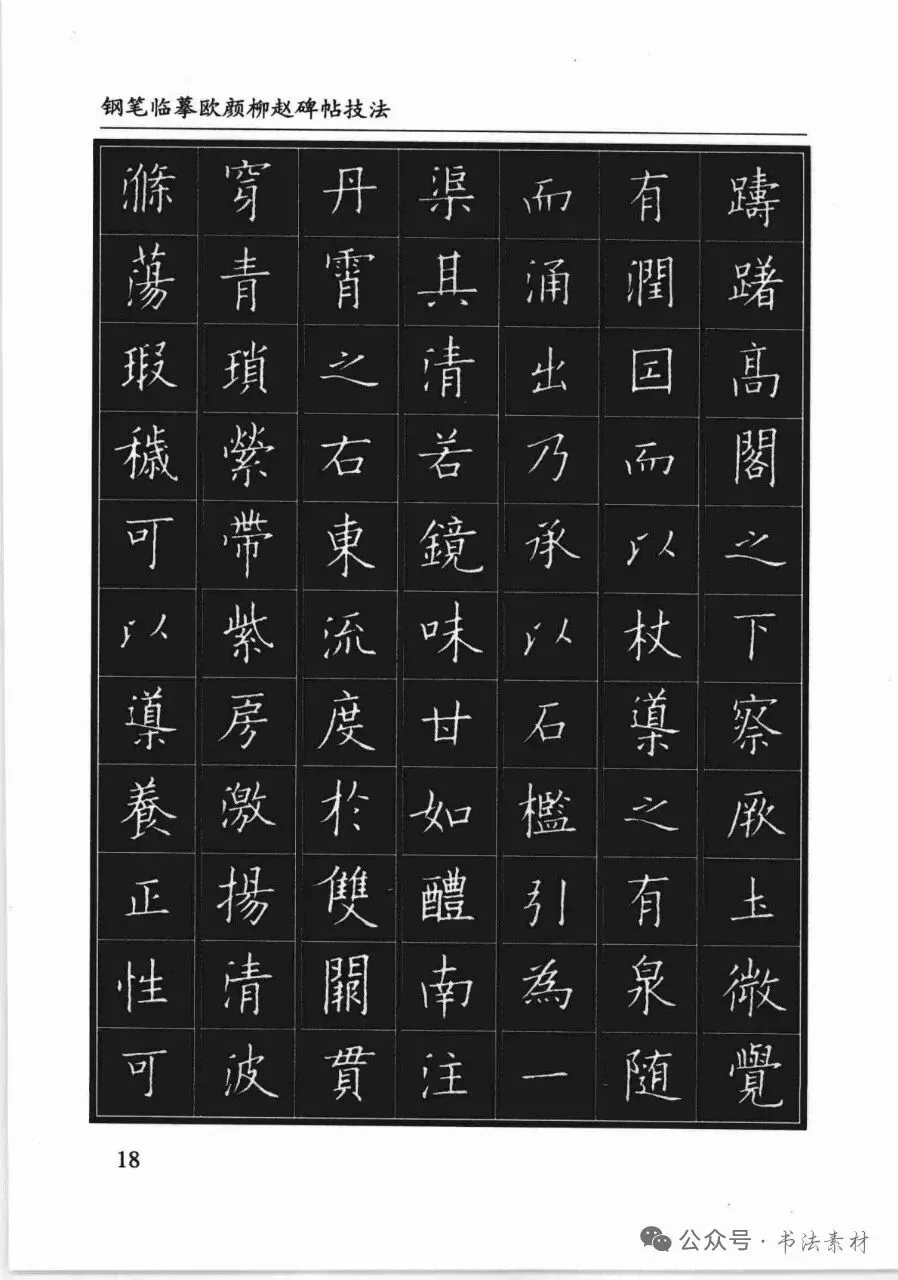 钢笔临摹欧颜柳赵碑帖技法
躊躇高閣之下察厥土微覺
有潤因而以杖導之有泉隨
而涌出乃承以石檻引為一
渠其清若鏡味甘如醴南注
丹霄之右東流度於雙闕貫
穿青瑣縈帶紫房激揚清波
滌蕩瑕穢可以導養正性可
18
公众号·书法素材